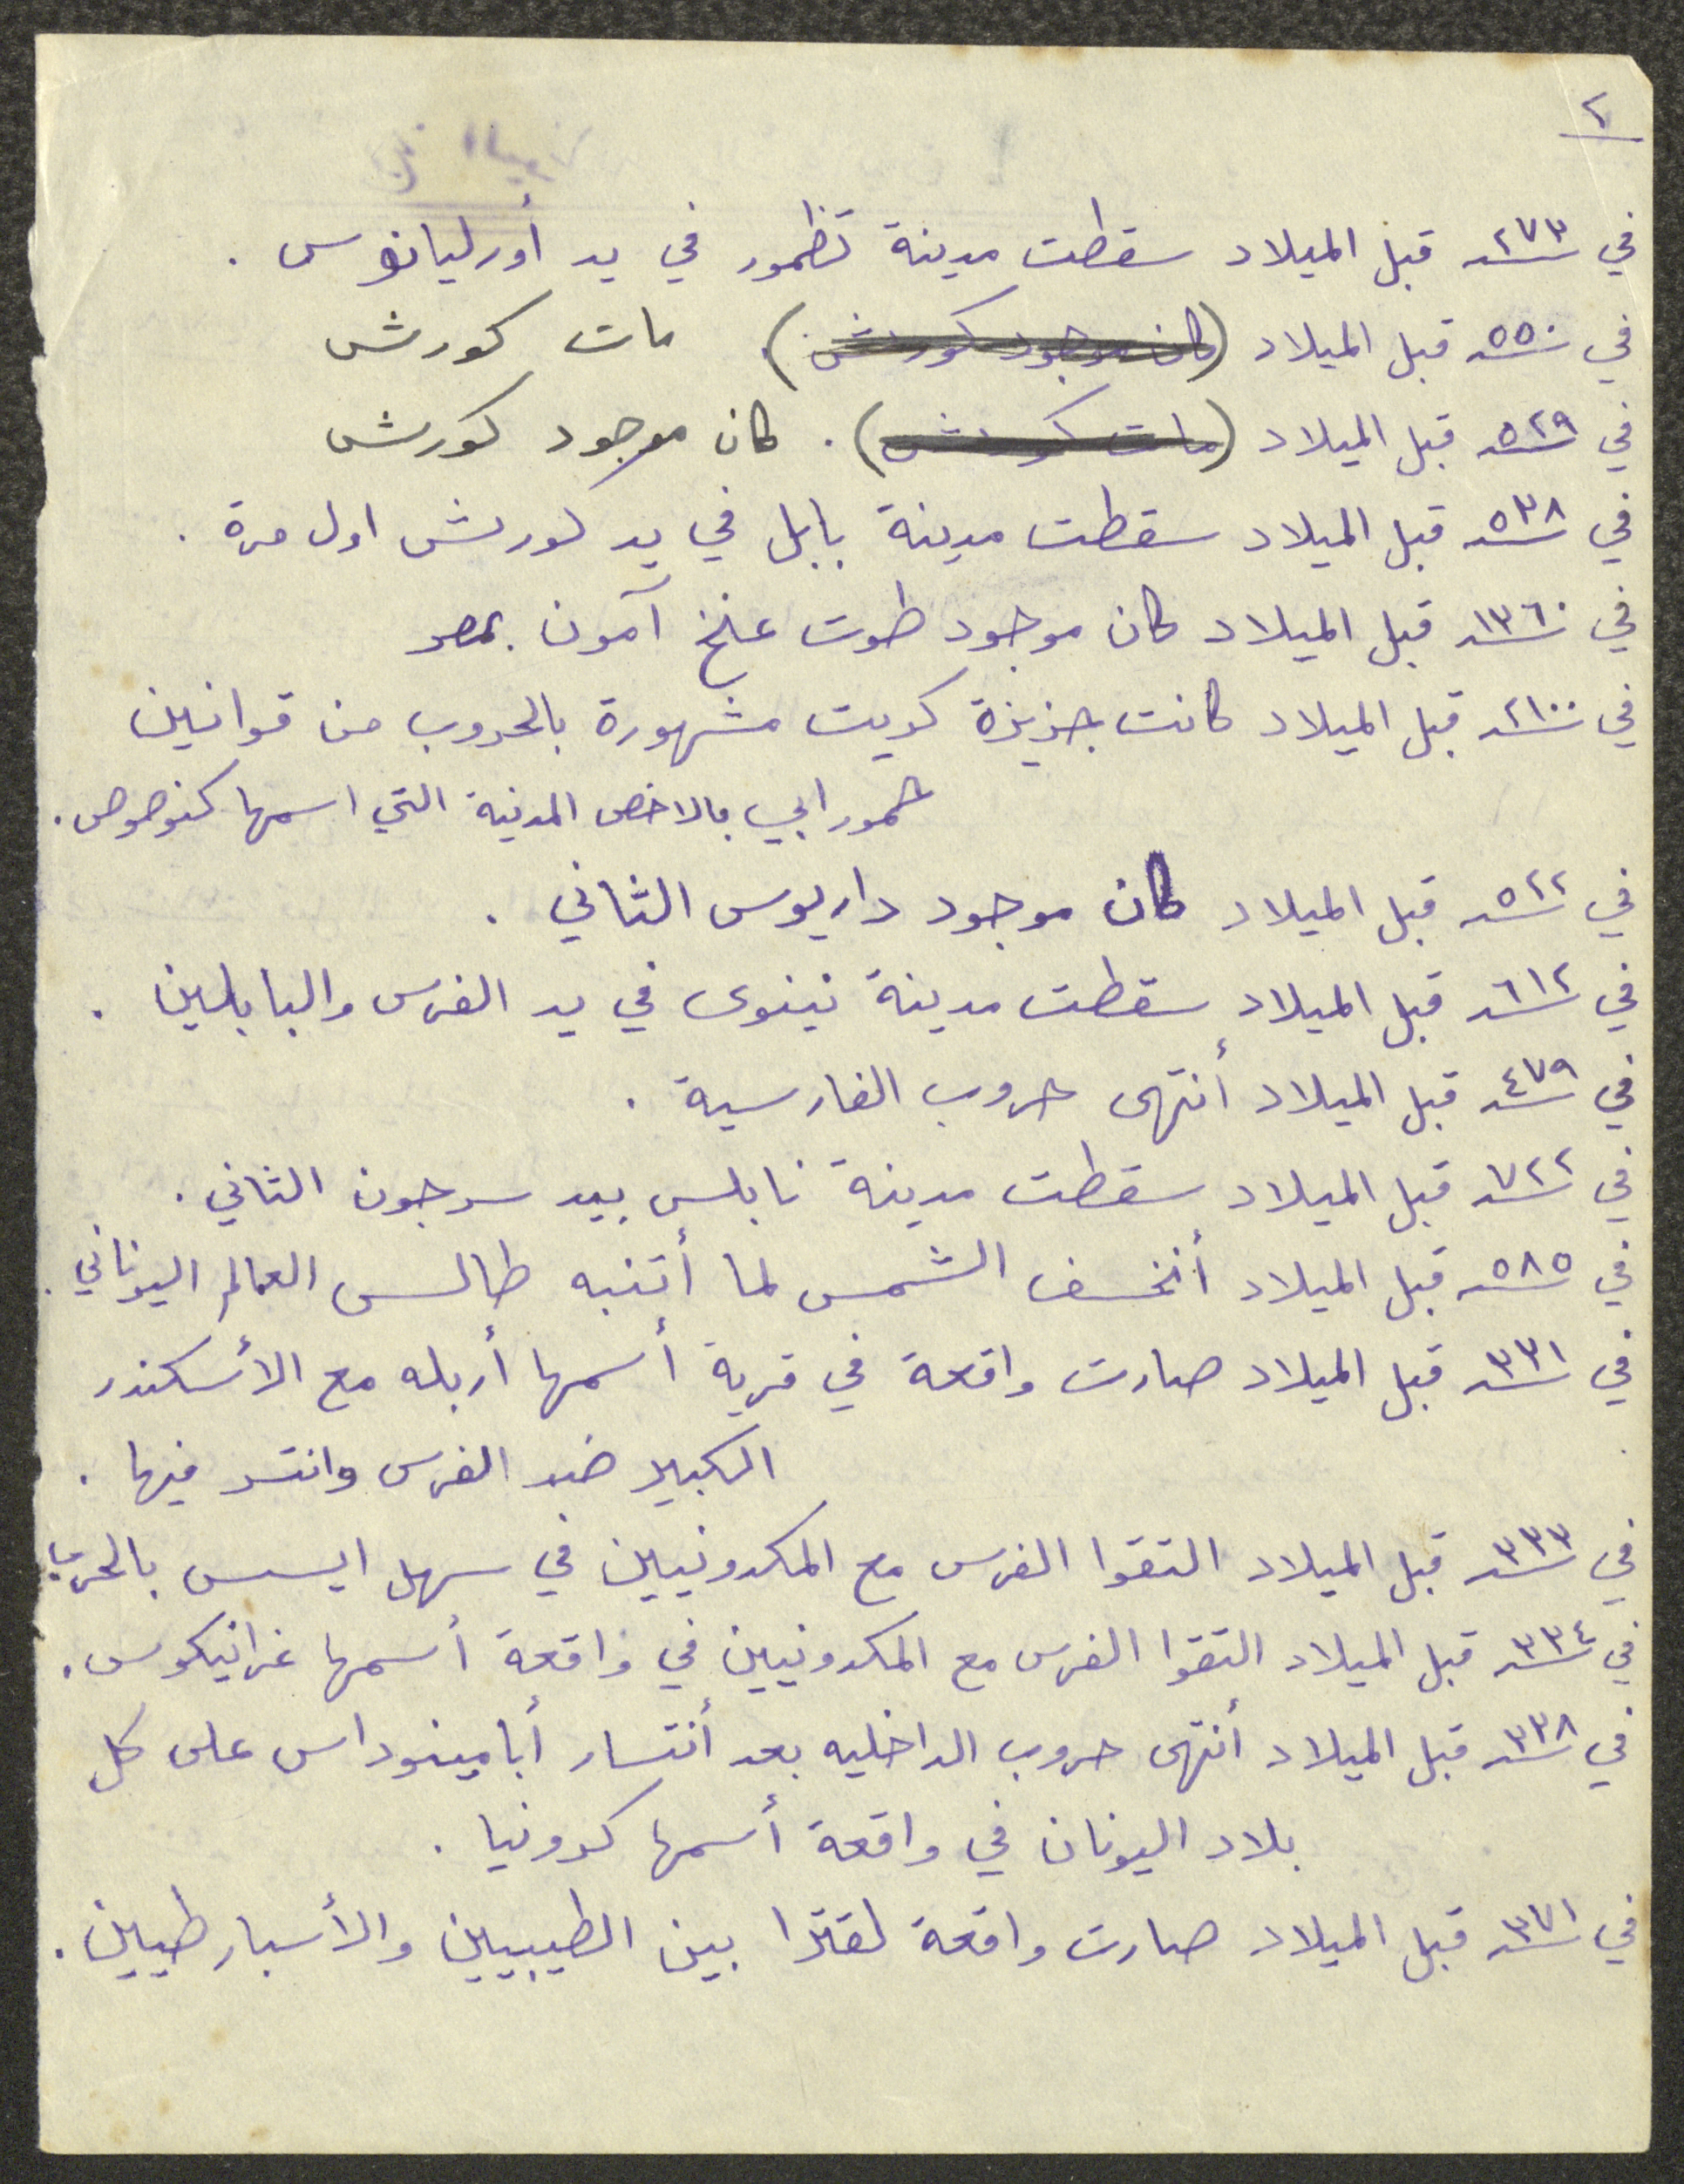 ٢
في ٢٧٣ قبل الميلاد سقطت مدينة تظمور في يد أورليانوس .
في ٥٥٠ قبل الميلاد (كان موجود كورش) . مات كورش
في ٥٢٩ قبل الميلاد (مات كورش) . كان موجود كورش
في ٥٣٨ قبل الميلاد سقطت مدينة بابل في يد كورش اول مرة .
في ١٣٦٠ قبل الميلاد كان موجود طوت عنخ آمون بمصر
في ٢١٠٠ قبل الميلاد كانت جزيزة كويت مشهورة بالحروب من قوانين
حمورابي بالاخص المدنية التي اسمها كنوصوص .
في ٥٢٢ قبل الميلاد كان موجود داريوس الثاني .
في ٦١٢ قبل الميلاد سقطت مدينة نينوى في يد الفرس والبابلين .
في ٤٧٩ قبل الميلاد أنتهى حروب الفارسية .
في ٧٢٢ قبل الميلاد سقطت مدينة نابلس بيد سرجون الثاني .
في ٥٨٥ قبل الميلاد أنخسف الشمس لما أتنبه طالس العالم اليوناني .
في ٣٣١ قبل الميلاد صارت واقعة في قرية أسمها أربله مع الأسكندر
الكبير ضد الفرس وانتسر فيها .
في ٣٣٣ قبل الميلاد التقوا الفرس مع المكدونيين في سهل ايسس بالحرب
في ٣٣٤ قبل الميلاد التقوا الفرس مع المكدونيين في واقعة أسمها غرانيكوس .
في ٣٣٨ قبل الميلاد أنتهى حروب الداخليه بعد أنتسار أبامينوداس على كل
بلاد اليونان في واقعة أسمها كرونيا .
في ٣٧١ قبل الميلاد صارت واقعة لقترا بين الطيبيين والأسبارطيين .